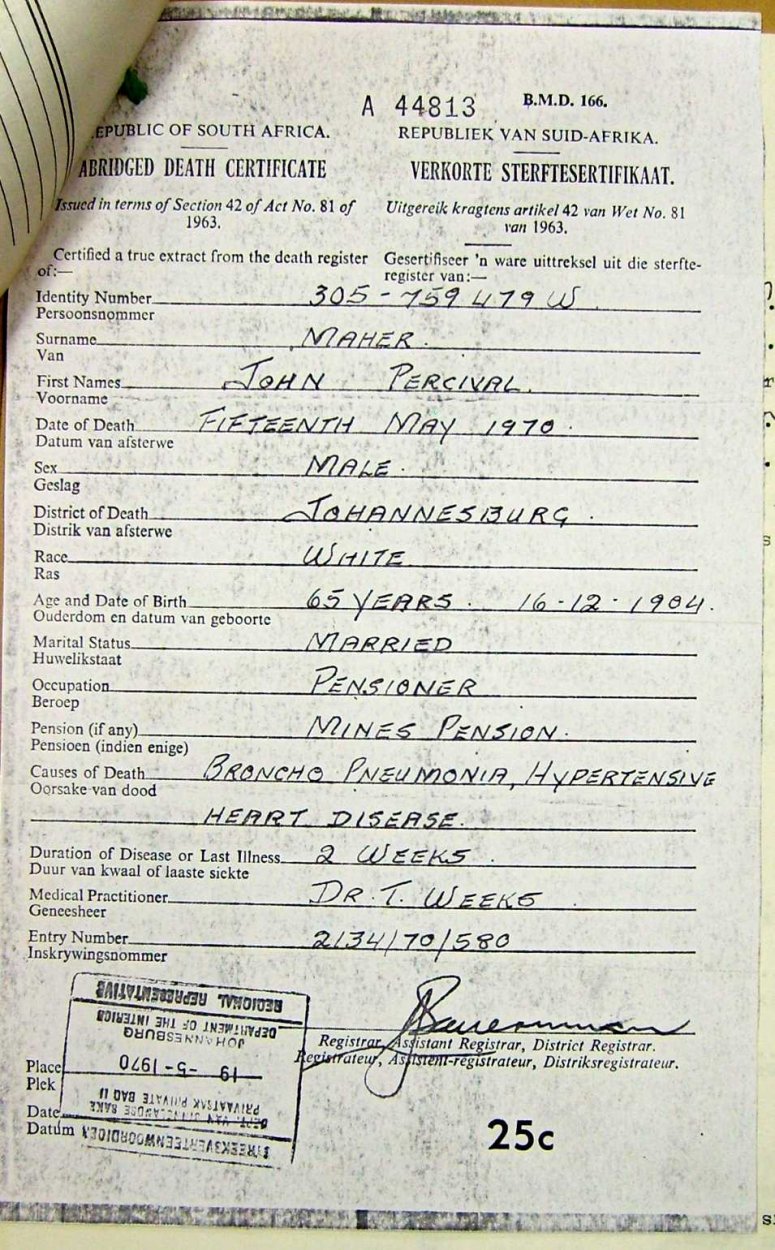 A 44813 B.M.D. 166.
EPUBLIC OF SOUTH AFRICA. REPUBLIEK VAN SUID-AFRIKA.
ABRIDGED DEATH CERTIFICATE VERKORTE STERFTESERTIFIKAAT.
Issued in terms of Section 42 of Act No. 81 of 1963. Uitgereik kragtens artikel 42 van Wet No. 81 van 1963.
Certified a true extract from the death register of:— Gesertifiseer 'n ware uittreksel uit die sterfte-register van:—
Identity Number 305-759479 W
Persoonsnommer
Surname MAHER.
Van
First Names JOHN PERCIVAL.
Voorname
Date of Death FIFTEENTH MAY 1970.
Datum van afsterwe
Sex MALE.
Geslag
District of Death JOHANNESBURG.
Distrik van afsterwe
Race WHITE
Ras
Age and Date of Birth 65 YEARS. 16-12-1904.
Ouderdom en datum van geboorte
Marital Status MARRIED
Huwelikstaat
Occupation PENSIONER
Beroep
Pension (if any) MINES PENSION.
Pensioen (indien enige)
Causes of Death BRONCHO PNEUMONIA, HYPERTENSIVE
Oorsake van dood
HEART DISEASE.
Duration of Disease or Last Illness 2 WEEKS.
Duur van kwaal of laaste siekte
Medical Practitioner DR. T. WEEKS.
Geneesheer
Entry Number 2134/70/580
Inskrywingsnommer
Registrar, Assistant Registrar, District Registrar.
Registrateur, Assistent-registrateur, Distriksregistrateur.
Place
Plek
Date
Datum
STREEKSVERTEENWOORDIGER
DEPT. VAN BINNELANDSE SAKE
PRIVAATSAK PRIVATE BAG 11
19 -5- 1970
JOHANNESBURG
DEPARTMENT OF THE INTERIOR
REGIONAL REPRESENTATIVE
25c